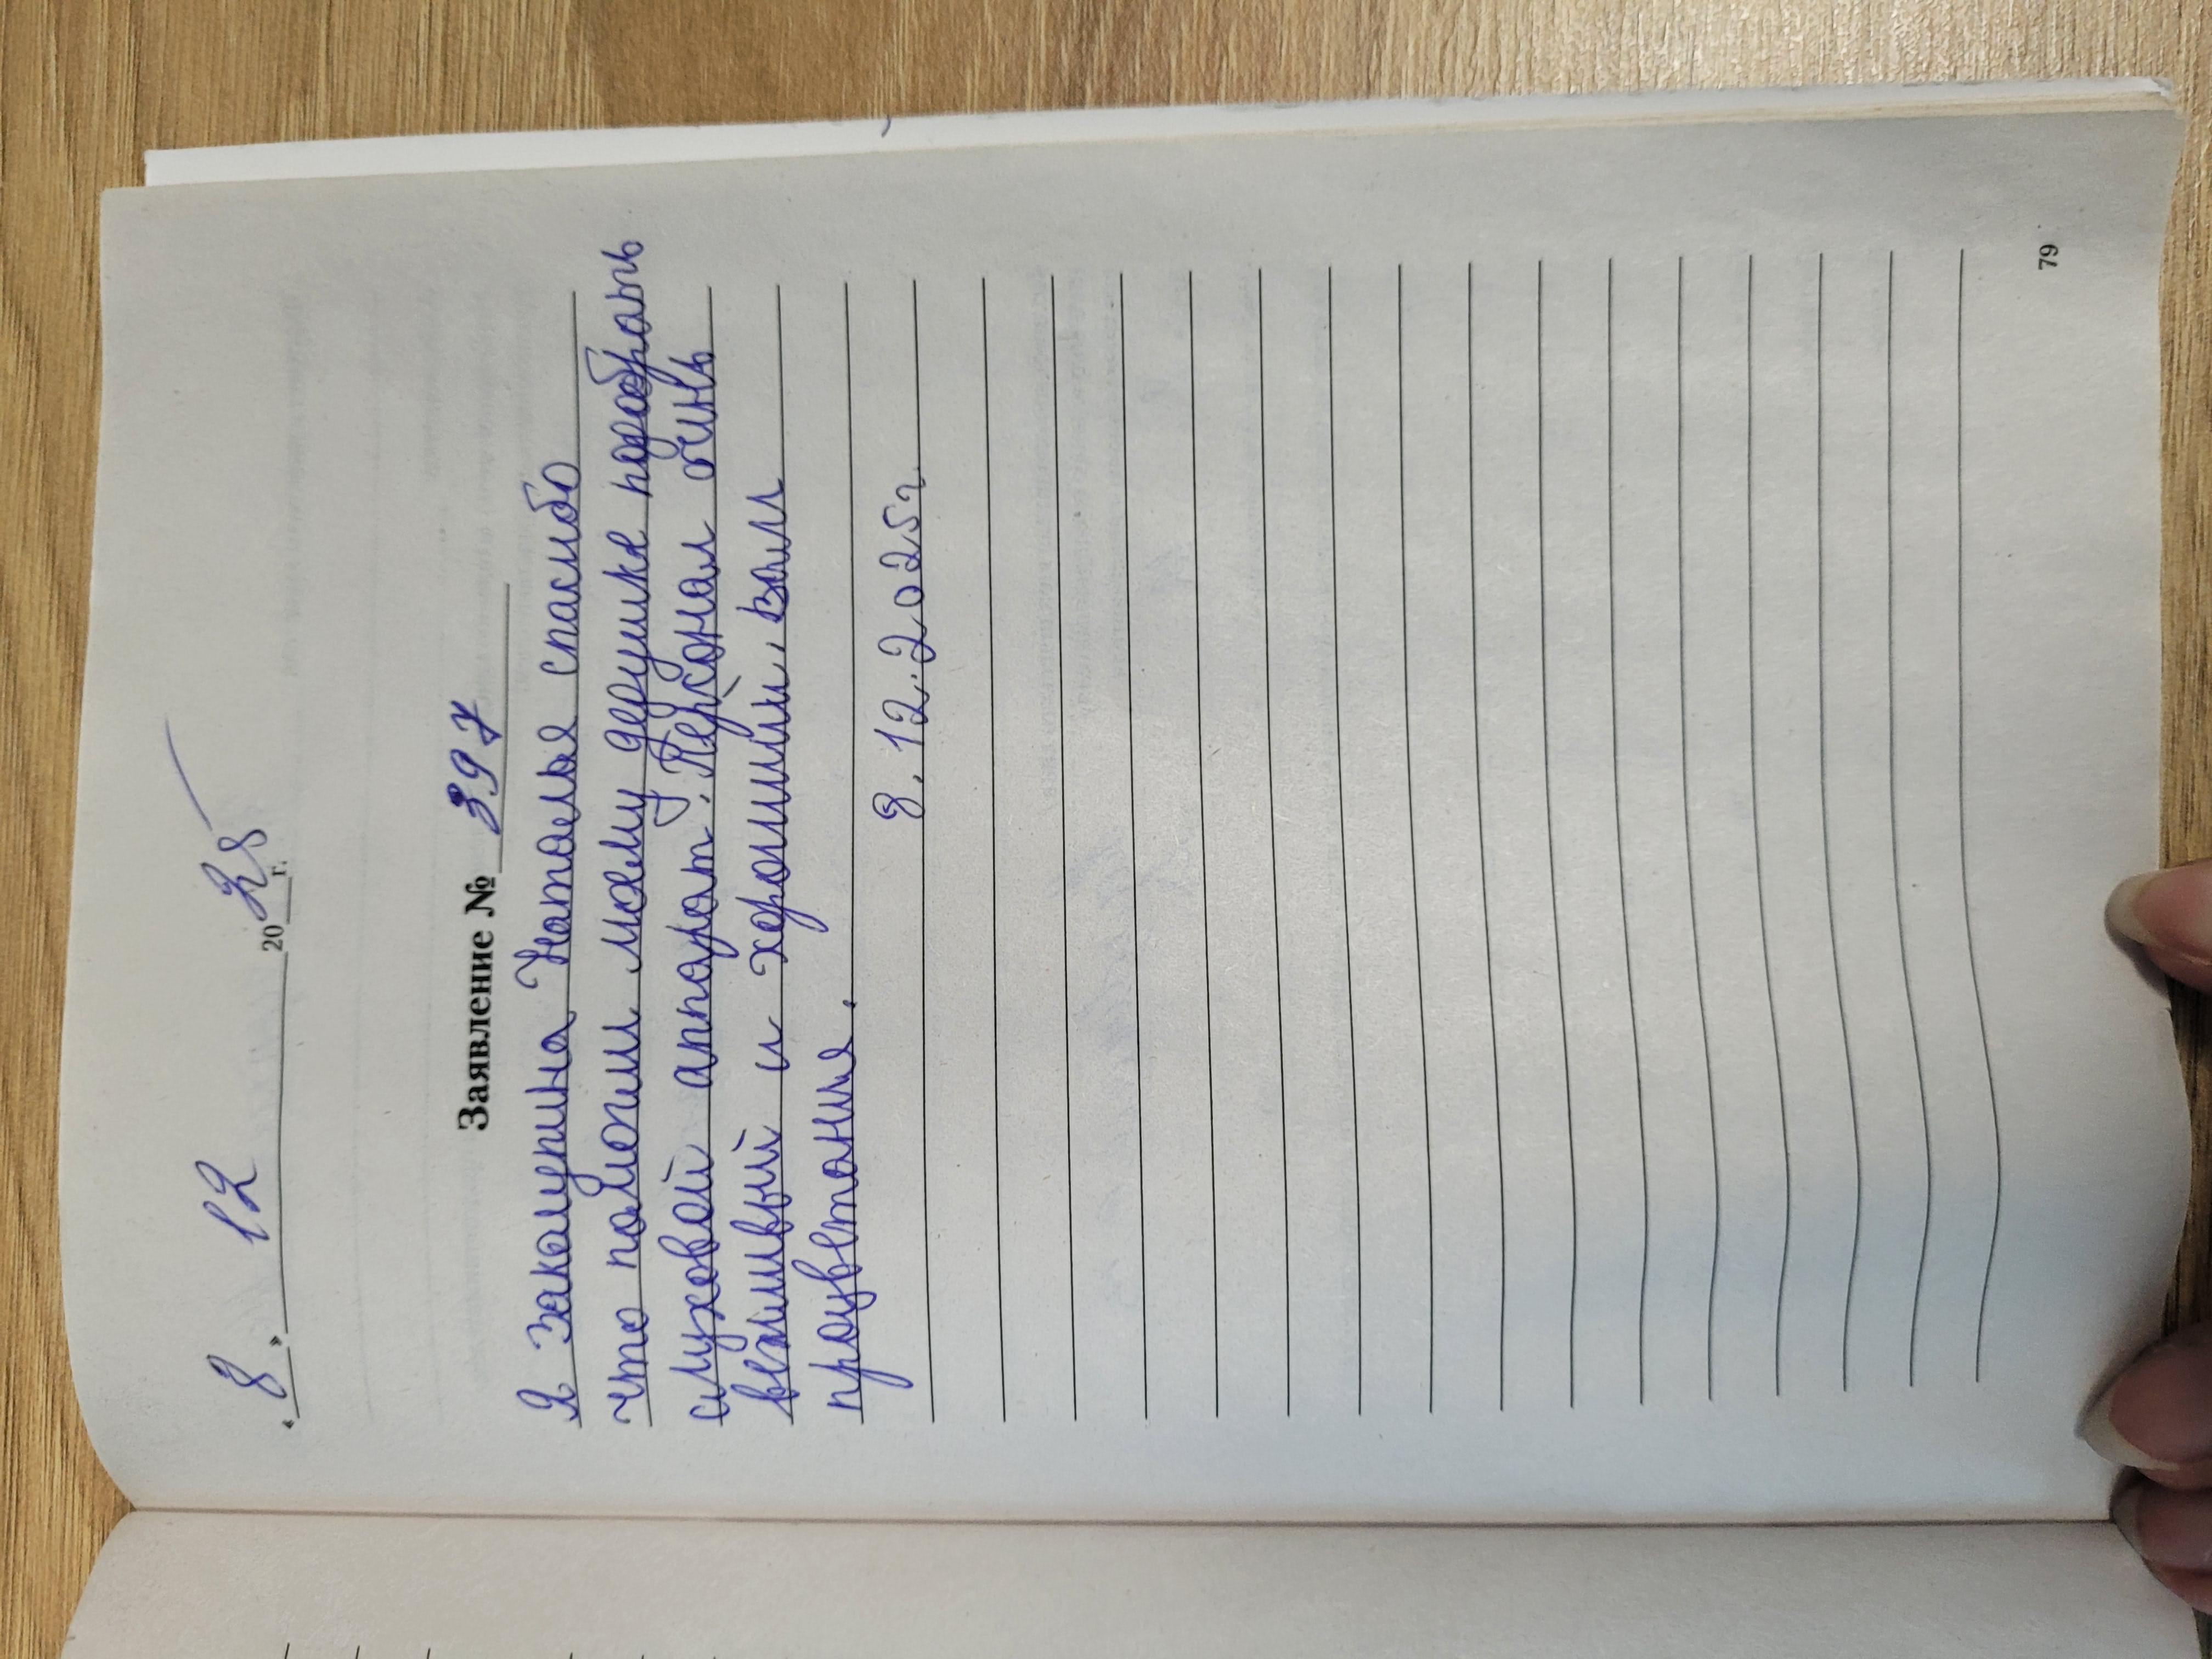 « 8 » 12 20 25 г.
Заявление № 397
Я Закомурина Наталья спасибо
что помогли моему дедушке подобрать
слуховой аппарат. Персонал очинь
вежливый и хороший. Вам
процветания.
8.12.2025г.
79